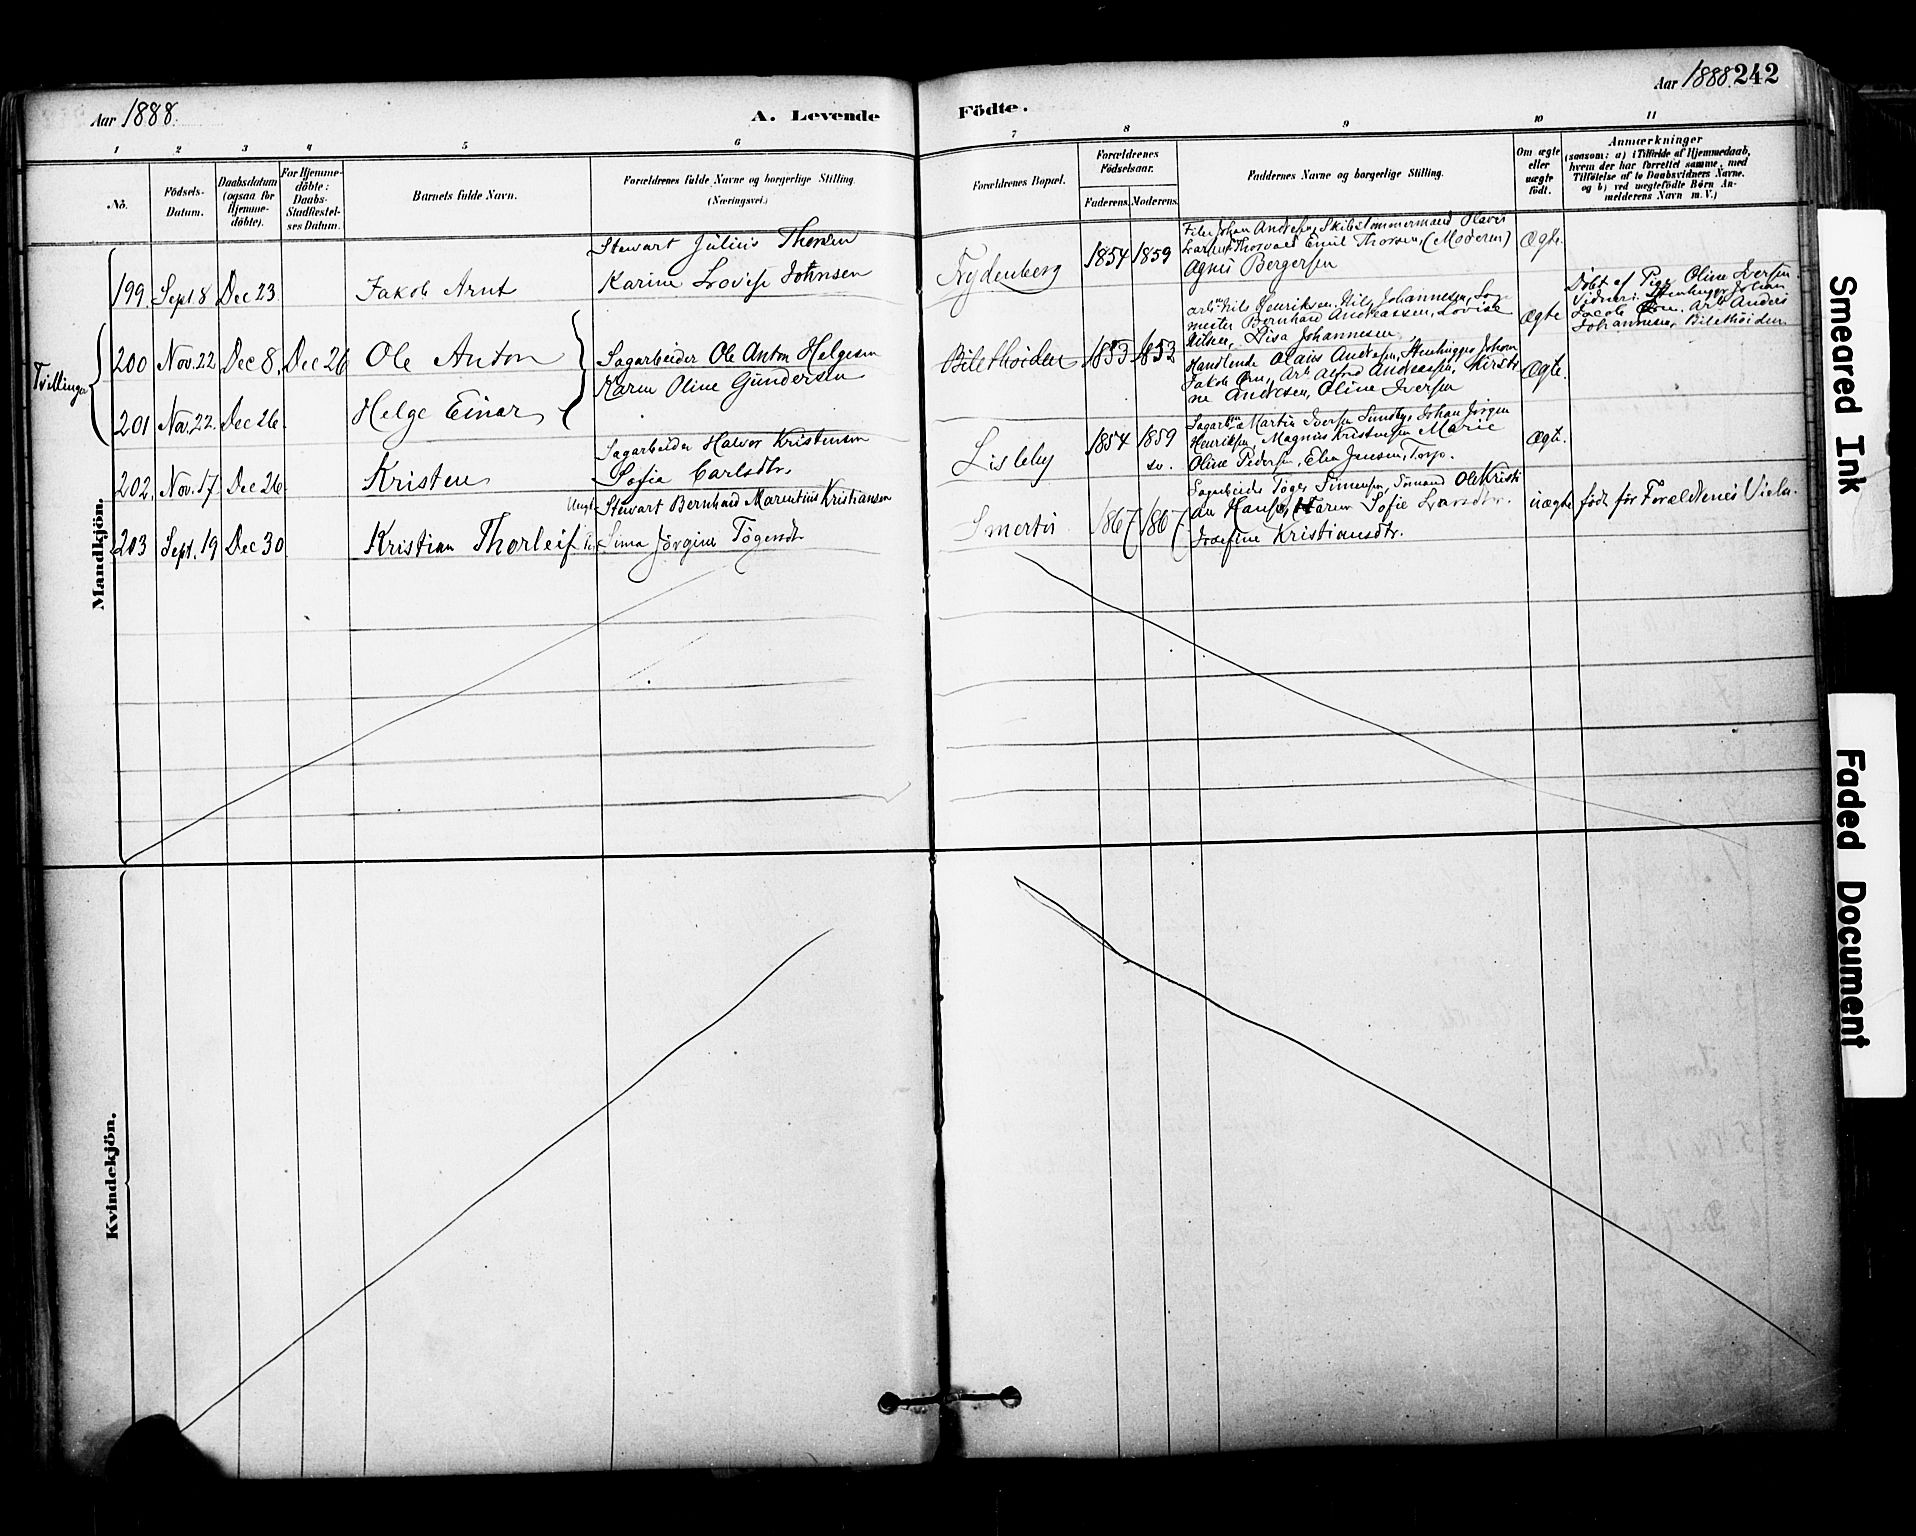 Aar 1888.
A. Levende
Födte.
Aar 1888. 242
1 2 3 4 5 6 7 8 9 10 11
No.
Födsels-
Datum.
Daabsdatum
(ogsaa for
Hjemme-
döbte).
For Hjemme-
döbte:
Daabs-
Stadfæstel-
ses Datum.
Barnets fulde Navn.
Forældrenes fulde Navne og borgerlige Stilling.
(Næringsvei.)
Forældrenes Bopæl.
Forældrenes
Födselsaar.
Faderens. Moderens.
Faddernes Navne og borgerlige Stilling.
Om ægte
eller
uægte
födt.
Anmærkninger
(saasom: a) i Tilfælde af Hjemmedaab,
hvem der har forrettet samme, med
Tilföielse af to Daabsvidners Navne,
og b) ved uægtefödte Börn An-
melderens Navn m. V.)
Mandkjön.
199. Sept 8 Dec 23. Jakob Arnt
Stewart Julius Thorsen
Karine Lovise Johnsen
Trydenberg 1854 1859
Johan Andresen, Skibstømmermand Olavus
Larsen, Thorvald Emil Thorsen, (Moderen)
Agnes Bergersen
Ægte.
Tvillinger
200 Nov. 22 Dec 8. Dec 26 Ole Anton
Sagarbeider Ole Anton Helgesen
Karen Oline Gundersen
Bilethöiden 1853 1853
Arb. Nils Henriksen, Nils Johannesen,
Bernhard Andreassen, Lovise
Nilsen, Lisa Johannesen
Ægte
Döbt af Pige Oline Iversen
Vidner: Stenhugger Johan
Jacob Örn, Arb Anders
Johannesen, Bilethöiden
201 Nov. 22. Dec 26. Helge Einar
Handlende Olaus Andresen, Stenhugger Johan
Jakob Örn, Arb Alfred Andreassen, Kirsti-
ne Andresen, Oline Iversen
Ægte.
202. Nov. 17 Dec 26 Kristen
Sagarbeider Halvor Kristensen
Sofie Carlsdtr.
Lisleby 1854 1859
sv.
Sagarb. Martin Iversen Sundby, Johan Jörgen
Henriksen, Magnus Kristensen, Marie
Oline Pedersen, Elen Jensen, Torp.
Ægte.
203 Sept. 19 Dec 30 Kristian Thorleif
Ungk. Stewart Bernhard Marentius Kristiansen
Pi. Lina Jörgine Tögersdtr
Smertu 1867 1867
Sagarbeider Töger Simensen, Sömand Ole Kristi-
an Hansen, Karen Sofie Larsdtr.
Josefine Kristiansdtr.
uægte født før Forældrenes Vielse.
Kvindekjön.
Smeared Ink
Faded Document